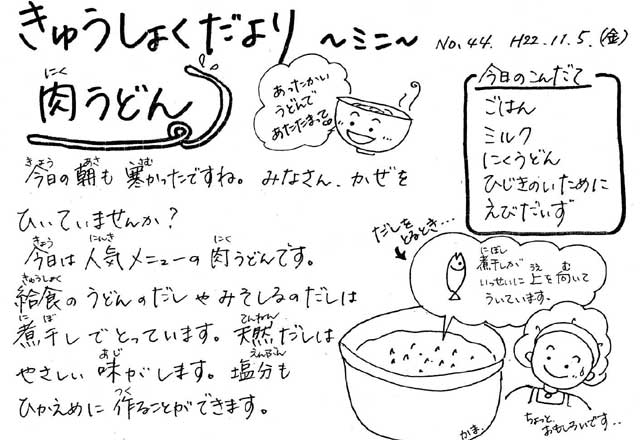 きゅうしょくだより ～ミニ～ No.44. H22.11.5.(金)
肉うどん
にく
あったかい
うどんで
あたたまって
今日のこんだて
ごはん
ミルク
にくうどん
ひじきのいために
えびだいず
きょう あさ さむ
今日の朝も寒かったですね。みなさん、かぜを
ひいていませんか?
きょう にんき にく
今日は人気メニューの肉うどんです。
きゅうしょく
給食のうどんのだしやみそしるのだしは
にぼ てんねん
煮干しでとっています。天然だしは
あじ えんぶん
やさしい味がします。塩分も
つく
ひかえめに作ることができます。
だしを
とるとき…
にぼし
煮干しが
うえ む
いっせいに上を向いて
ういています。
かま
ちょっと、
おもしろいです..